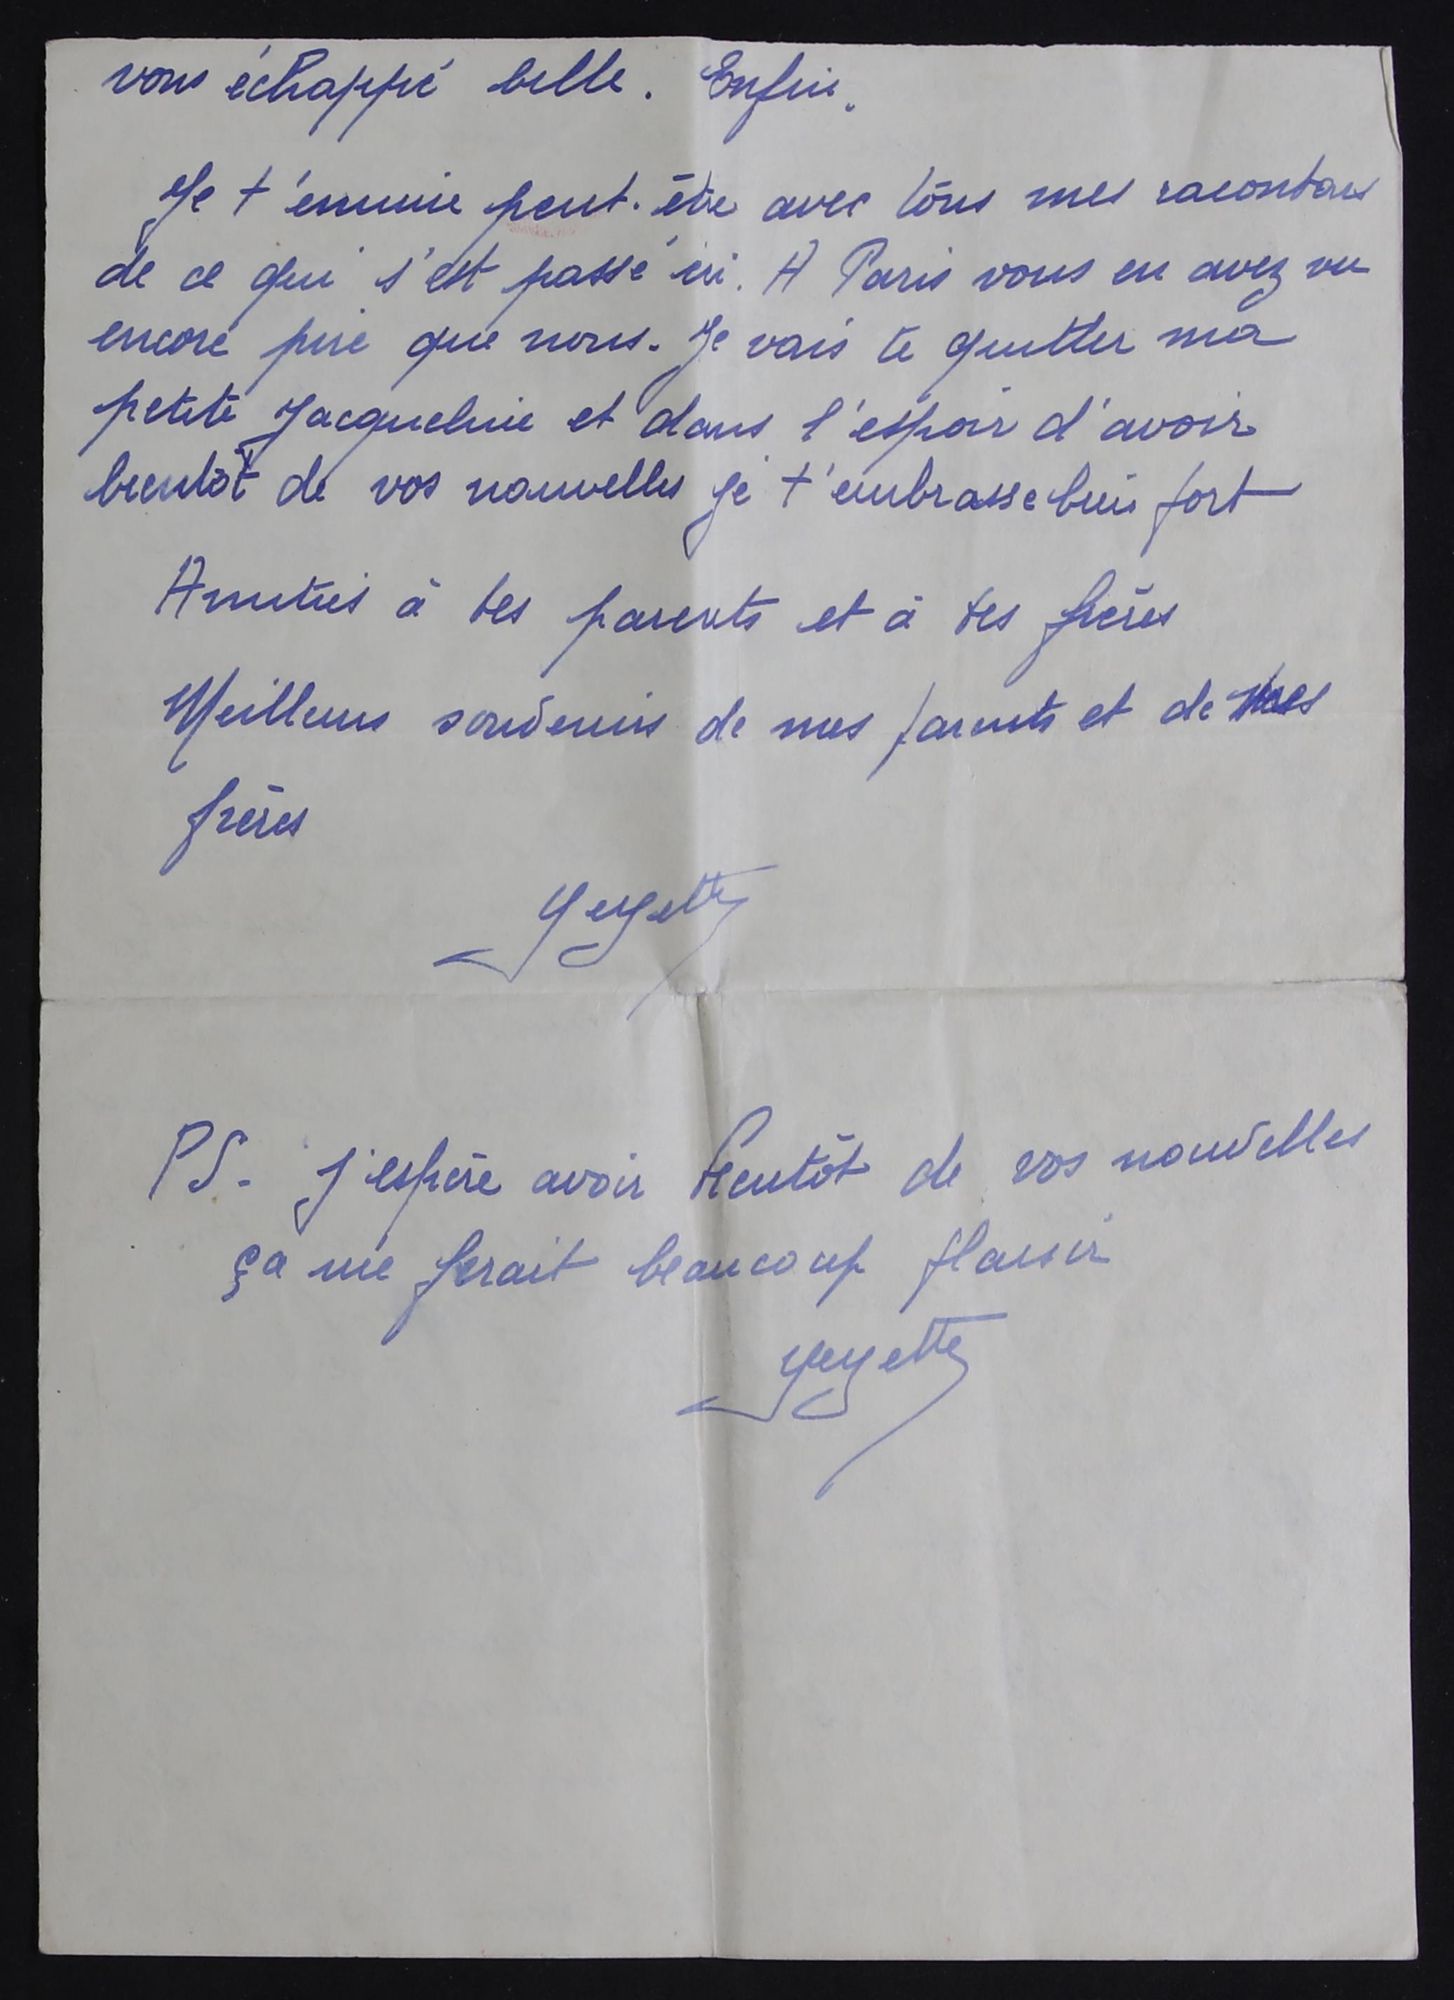 vons échappé belle. Enfin.
Je t'ennuie peut-être avec tous mes racontars
de ce qui s'est passé ici. A Paris vous en avez vu
encore pire que nous. Je vais te quitter ma
petite Jacqueline et dans l'espoir d'avoir
bientôt de vos nouvelles je t'embrasse bien fort
Amitiés à tes parents et à tes frères
Meilleurs souvenirs de mes parents et de mes
frères
Yeyette
PS. J'espère avoir bientôt de vos nouvelles
ça me ferait beaucoup plaisir
Yeyette